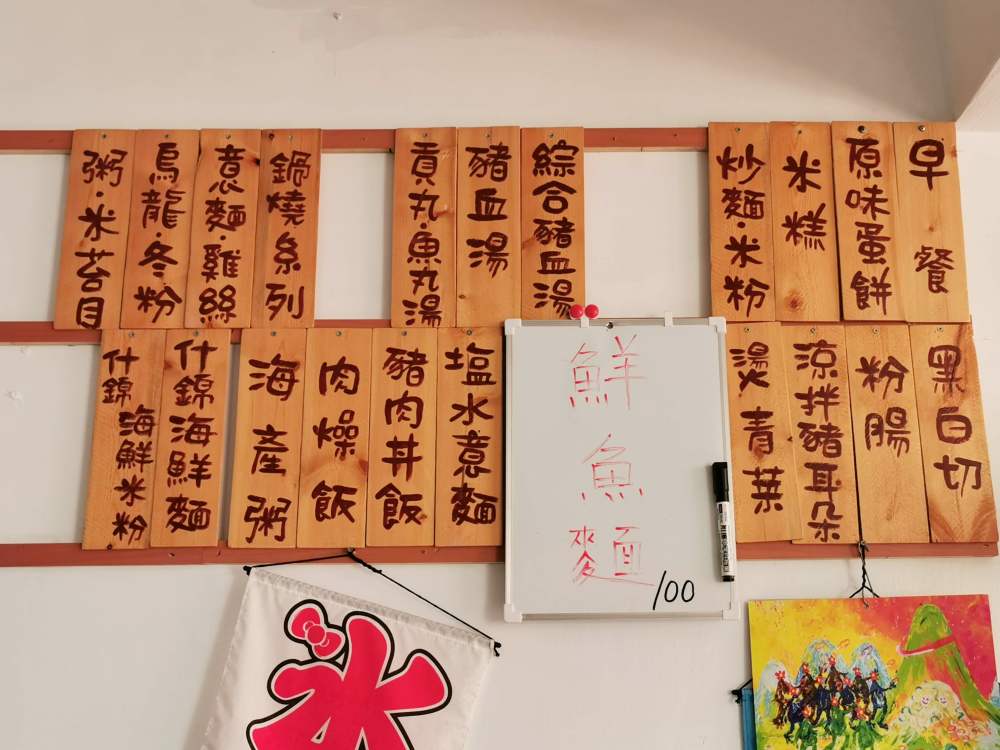 早餐
原味蛋餅
米糕
炒麵·米粉
綜合豬血湯
豬血湯
貢丸·魚丸湯
鍋燒系列
意麵·雞絲
烏龍·冬粉
粥·米苔目
黑白切
粉腸
涼拌豬耳朵
燙青菜
鮮魚麵
100
塩水意麵
豬肉丼飯
肉燥飯
海產粥
什錦海鮮麵
什錦海鮮米粉
冰